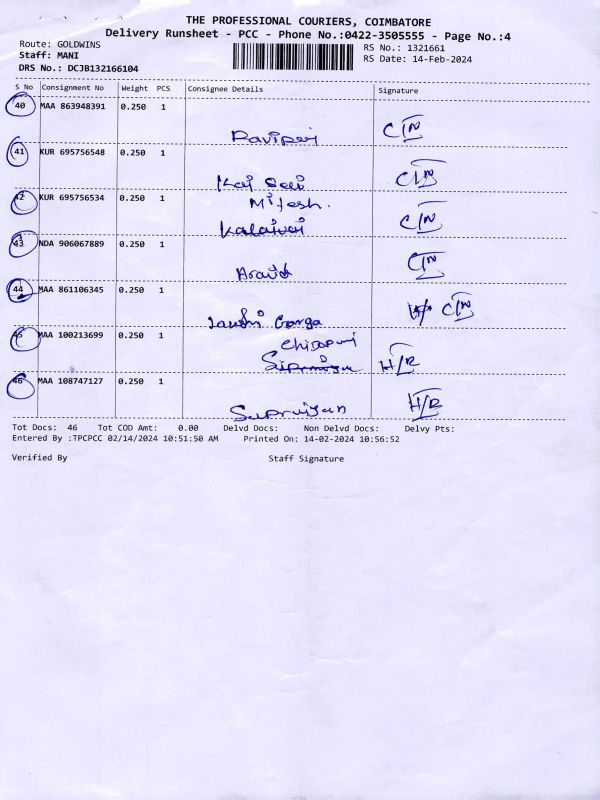 THE PROFESSIONAL COURIERS, COIMBATORE
Delivery Runsheet - PCC - Phone No.:0422-3505555 - Page No.:4
Route: GOLDWINS
RS No.: 1321661
Staff: MANI
RS Date: 14-Feb-2024
DRS No.: DCJB132166104
S No Consignment No Weight PCS Consignee Details Signature
40 MAA 863948391 0.250 1
C/N
41 KUR 695756548 0.250 1
C/N
42 KUR 695756534 0.250 1 Mitesh.
C/N
43 NDA 906067889 0.250 1
Aravid C/N
44 MAA 861106345 0.250 1
C/N
45 MAA 100213699 0.250 1
H/R
46 MAA 108747127 0.250 1
H/R
Tot Docs: 46 Tot COD Amt: 0.00 Delvd Docs: Non Delvd Docs: Delvy Pts:
Entered By :TPCPCC 02/14/2024 10:51:50 AM Printed On: 14-02-2024 10:56:52
Verified By Staff Signature